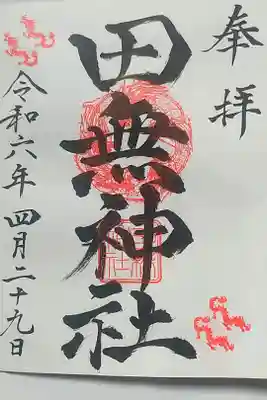 奉拝
田無神社
令和六年 四月二十九日